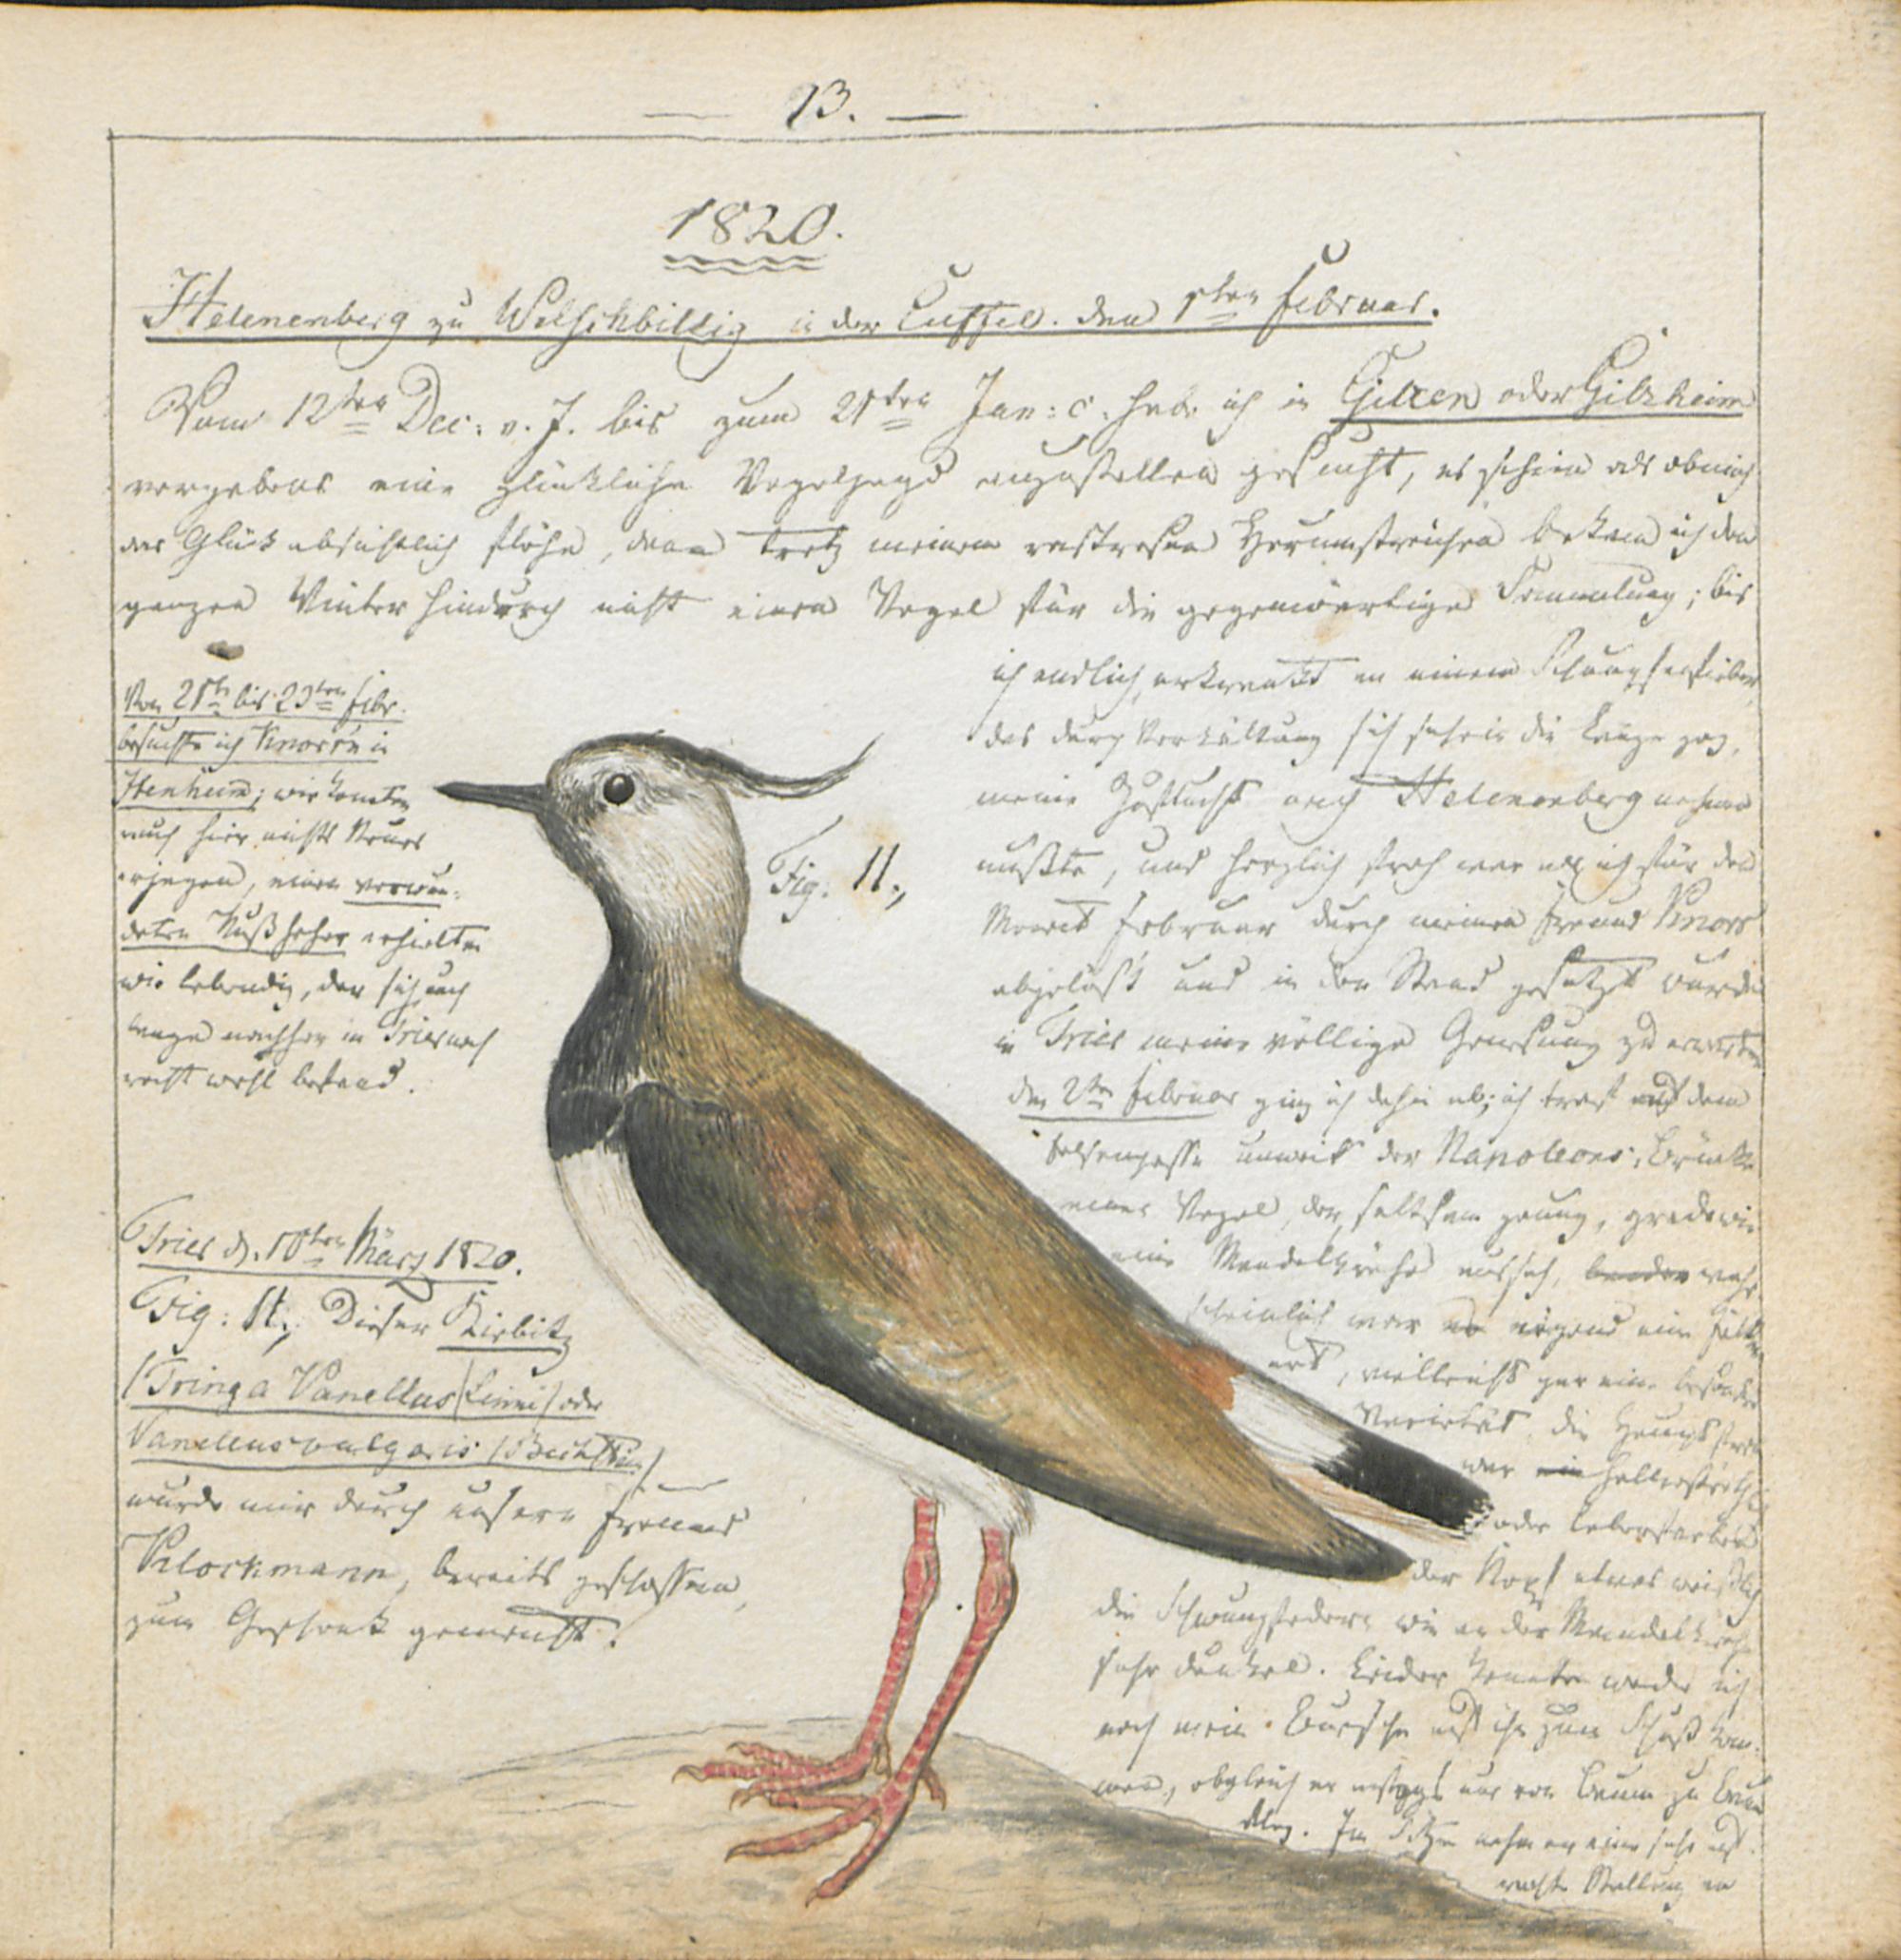 — 13. —
1820.
Helenenberg zu Welschbillig in der Euffel. den 1ten Februar.
Vom 12ten Dec: v. J. bis zum 21ten Jan: c. habe ich in Gilzen oder Gilzheim
vergebens eine glückliche Vogeljagd anzustellen gesucht, es schien als ob mich
das Glück absichtlich flöhe, denn trotz meinem rastlosen Herumstreichen bekam ich den
ganzen Winter hindurch nicht einen Vogel für die gegenwärtige Sammlung; bis
ich endlich, erkrankt an einem Schnupfenfieber
das durch Verkältung sich sehr in die Länge zog,
meine Zuflucht nach Helenenberg nehmen
mußte, und herzlich froh war als ich für den
Monat Februar durch meinen Freund Knorr
abgelöst und in den Stand gesetzt wurde
in Trier meine völlige Genesung zu erwarten
den 2ten Februar ging ich dahin ab; ich traf auf dem
Felsenpasse unweit der Napoleons-Brücke
einen Vogel, der, seltsam genug, grade wie
eine Mandelkrähe aussah, wahr
scheinlich war es irgend eine
art, vielleicht gar eine besondre
Varietät, die Hauptfarbe
war ein
oder leberfarben
der Kopf etwas weißlich
die Schwungfedern wie an der Mandelkrähe
sehr dunkel. Leider konnte weder ich
noch mein Bursche auf ihn zum Schuß kom-
men, obgleich er nur von Baum zu Baum
flog. Im Sitzen nahm er eine sehr auf
rechte Stellung an
Vom 21ten bis 23ten Febr.
besuchte ich Knorr'n in
Itenheim; wir konnten
auch hier nichts Neues
erjagen, einen verwun-
deten Nußheher erhielten
wir lebendig, der sich noch
lange nachher in Trier noch
recht wohl befand.
Fig. 11.,
Trier d. 10ten März 1820.
Fig: 11., Dieser Kiebitz
(Tringa Vanellus (Linné) oder
Vanellus vulgaris (Bechstein)
wurde mir durch unsern Freund
Klockmann, bereits geschossen,
zum Geschenk gemacht.